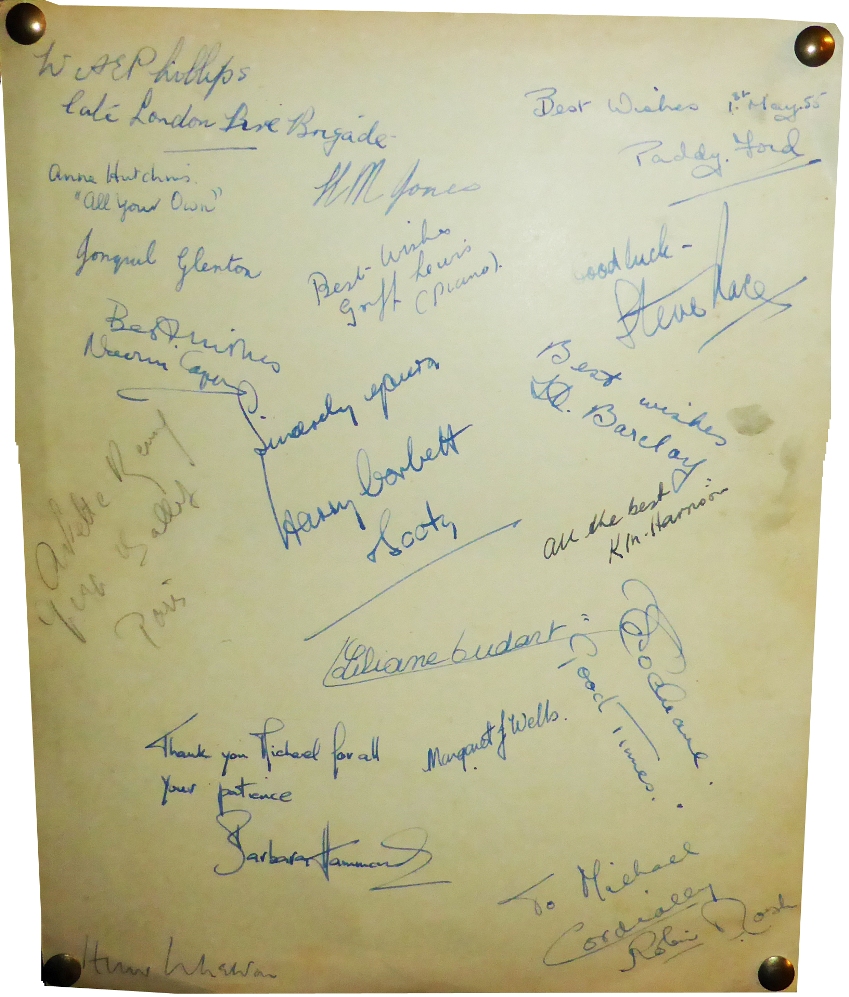 W A E Phillips
late London Fire Brigade
Best Wishes 1st May. 55
Paddy. Ford
Anne Hutchins.
"All Your Own"
H M Jones
Jonquil Glenton
Best Wishes
Griff Lewis
(Piano).
Good luck -
Steve Race
Best Wishes
Best wishes
Barclay
Sincerely yours
Harry Corbett
Sooty
All the best
K M. Harrison
Paris
Liliane
Good Times.
Thank you Michael for all
your patience
Barbara Hammond
Margaret J Wells.
To Michael
Cordially
Robin Nash